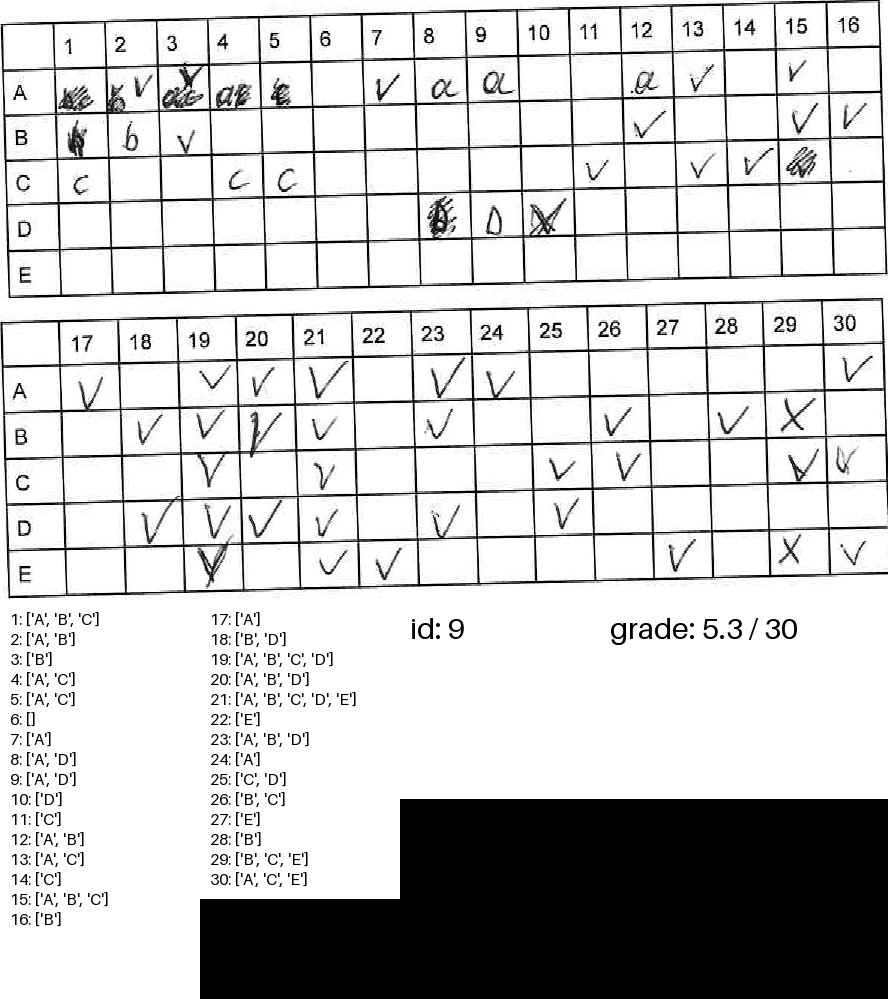 1 2 3 4 5 6 7 8 9 10 11 12 13 14 15 16
A ✓ a a a ✓ ✓
B b ✓ ✓ ✓ ✓
C c c c ✓ ✓ ✓
D D
E
17 18 19 20 21 22 23 24 25 26 27 28 29 30
A ✓ ✓ ✓ ✓ ✓ ✓ ✓
B ✓ ✓ ✓ ✓ ✓ ✓ ✓ X
C ✓ ✓ ✓ ✓ ✓ ✓
D ✓ ✓ ✓ ✓ ✓ ✓
E ✓ ✓ ✓ X ✓
1: ['A', 'B', 'C']
2: ['A', 'B']
3: ['B']
4: ['A', 'C']
5: ['A', 'C']
6: []
7: ['A']
8: ['A', 'D']
9: ['A', 'D']
10: ['D']
11: ['C']
12: ['A', 'B']
13: ['A', 'C']
14: ['C']
15: ['A', 'B', 'C']
16: ['B']
17: ['A']
18: ['B', 'D']
19: ['A', 'B', 'C', 'D']
20: ['A', 'B', 'D']
21: ['A', 'B', 'C', 'D', 'E']
22: ['E']
23: ['A', 'B', 'D']
24: ['A']
25: ['C', 'D']
26: ['B', 'C']
27: ['E']
28: ['B']
29: ['B', 'C', 'E']
30: ['A', 'C', 'E']
id: 9
grade: 5.3 / 30